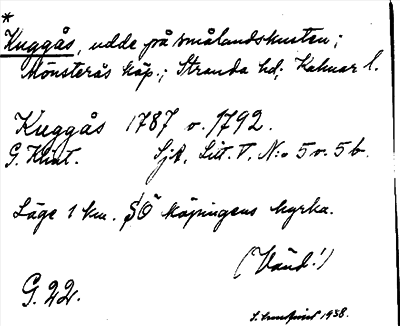 *
Kuggås, udde på smålandskusten;
Mönsterås köp.; Stranda hd; Kalmar l.
Kuggås 1787 o. 1792.
G. Klint. Sjk. Litt. V. N:o 5 o. 5 b.
Läge 1 km. SÖ köpingens kyrka.
(Vänd!)
G. 22.
1938.